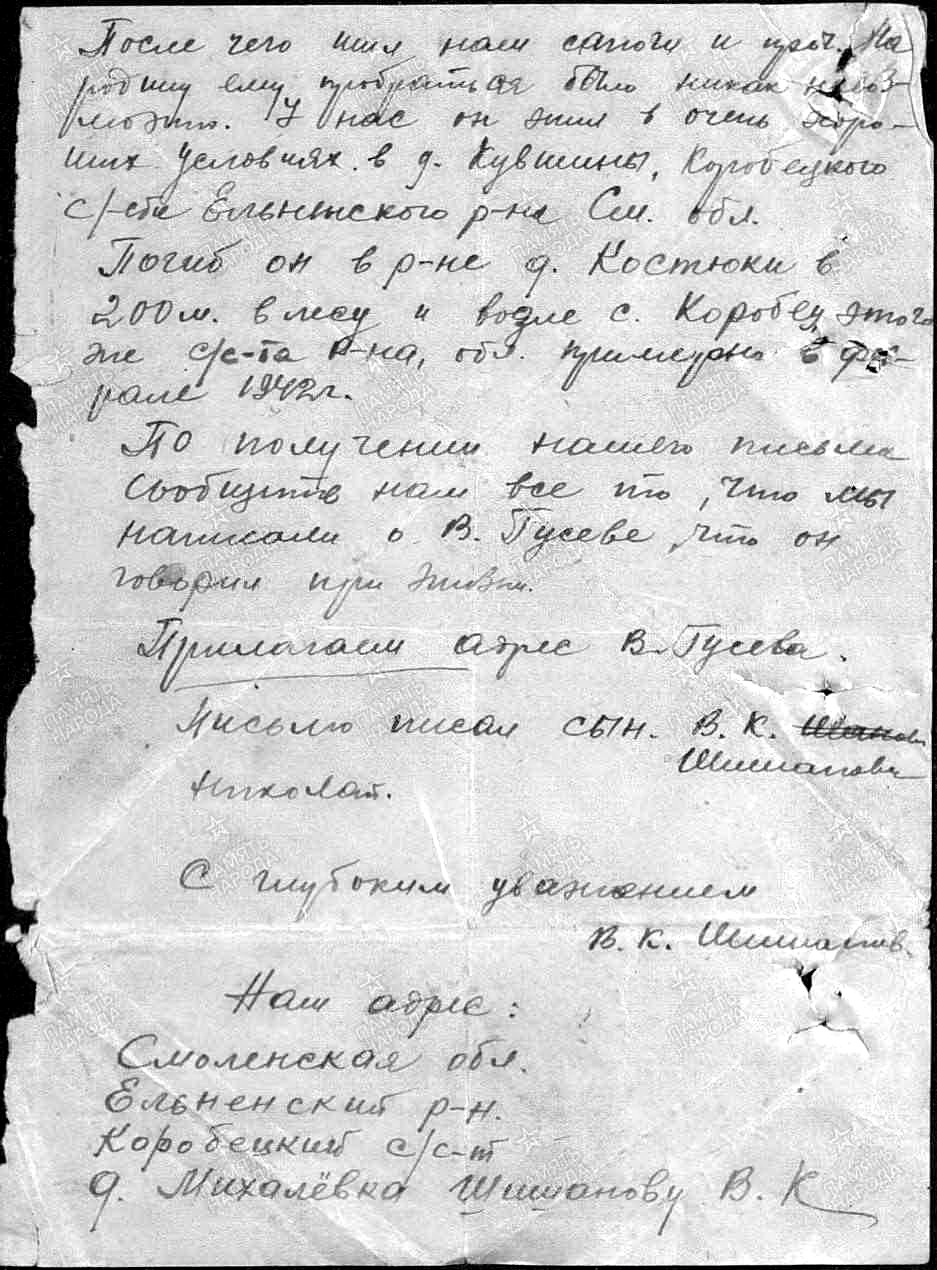 После чего шил нам сапоги и проч. На
родину ему пробраться было никак невоз-
можно. У нас он жил в очень хоро-
ших условиях в д. Кувшины, Коробецкого
с/-ста Ельнинского р-на См. обл.
Погиб он в р-не д. Костюки в
200 м. в лесу и возле с. Коробец этого
же с/с-та р-на, обл. примерно в фев-
рале 1942 г.
По получении нашего письма
сообщите нам все то, что мы
написали о В. Гусеве, что он
говорил при жизни.
Прилагаем адрес В. Гусева.
Письмо писал сын. В. К.
Шишанова
Николай.
С глубоким уважением
В. К. Шишанов.
Наш адрес:
Смоленская обл.
Ельненский р-н.
Коробецкий с/с-т
д. Михалёвка Шишанову В. К
ПАМЯТЬ НАРОДА